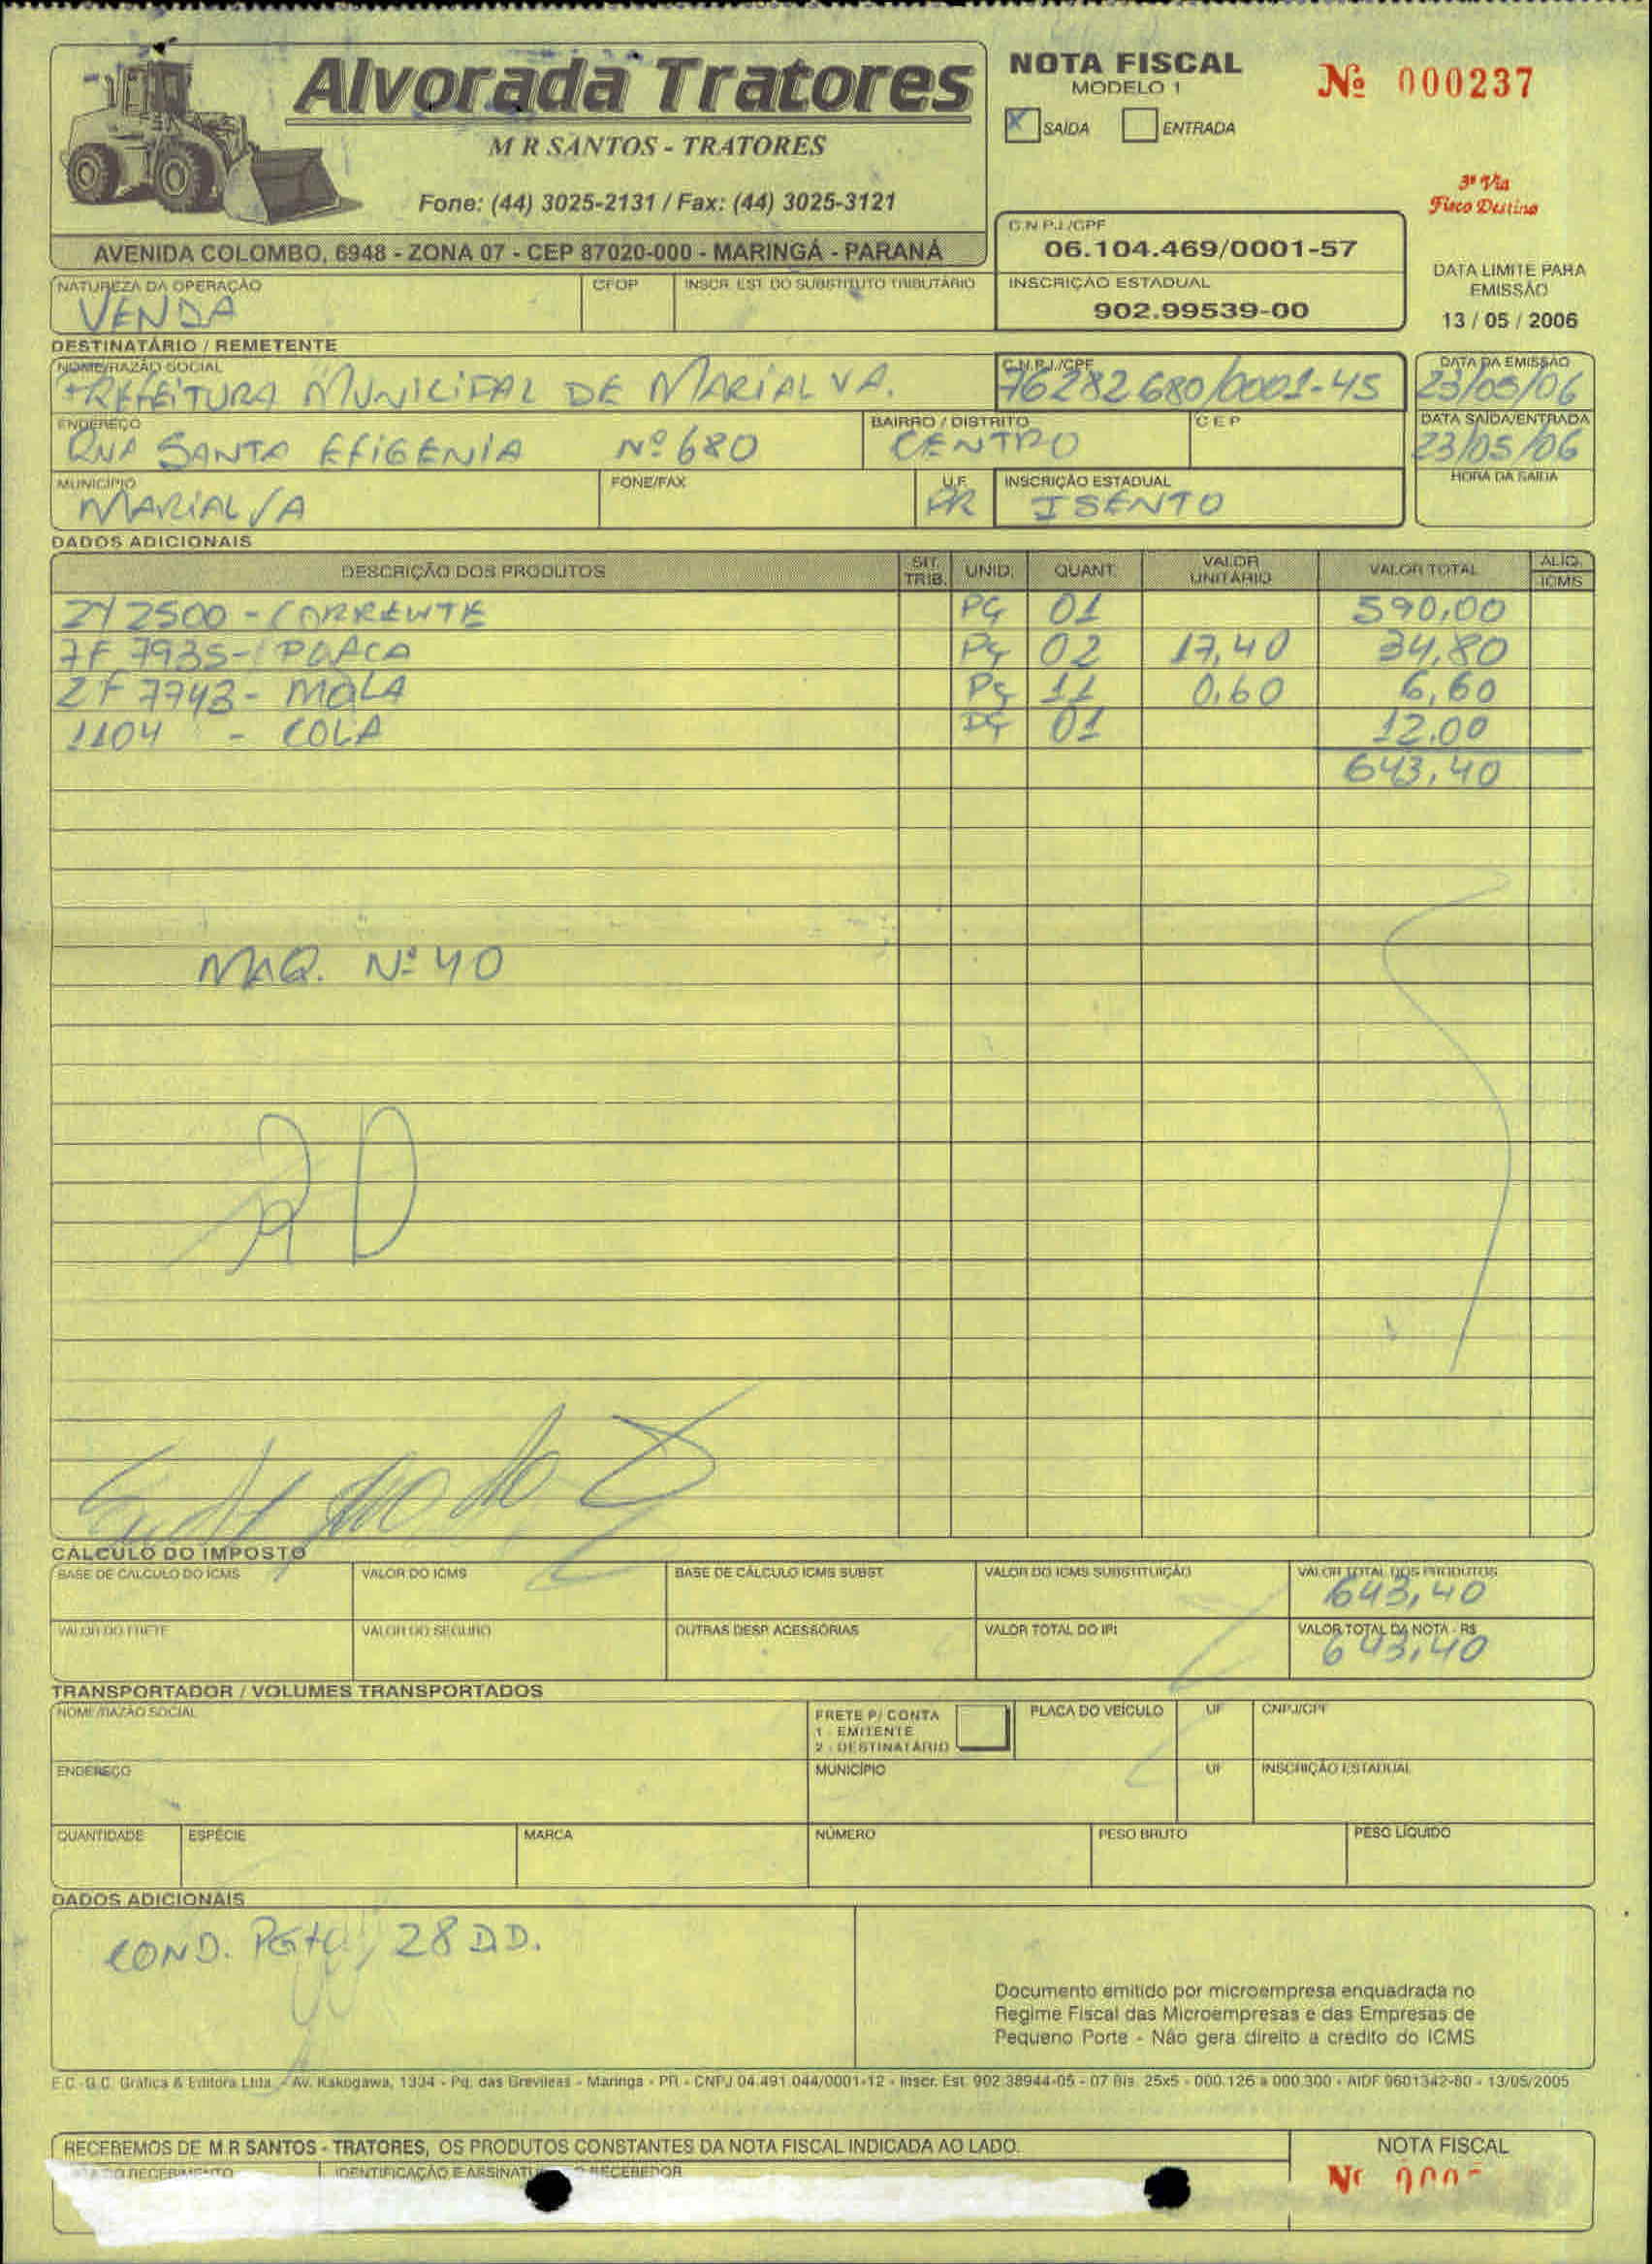 Alvorada Tratores
M R SANTOS - TRATORES
Fone: (44) 3025-2131 / Fax: (44) 3025-3121
AVENIDA COLOMBO, 6948 - ZONA 07 - CEP 87020-000 - MARINGÁ - PARANÁ
NOTA FISCAL
MODELO 1
X SAÍDA ENTRADA
Nº 000237
3ª Via
Fisco Destino
C.N.P.J./CPF
06.104.469/0001-57
INSCRIÇÃO ESTADUAL
902.99539-00
DATA LIMITE PARA
EMISSÃO
13 / 05 / 2006
NATUREZA DA OPERAÇÃO CFOP INSCR. EST. DO SUBSTITUTO TRIBUTÁRIO
VENDA
DESTINATÁRIO / REMETENTE
NOME/RAZÃO SOCIAL C.N.P.J./CPF DATA DA EMISSÃO
PREFEITURA MUNICIPAL DE MARIALVA. 76282680/0001-45 23/05/06
ENDEREÇO BAIRRO / DISTRITO CEP DATA SAÍDA/ENTRADA
RUA SANTA EFIGENIA Nº 680 CENTRO 23/05/06
MUNICÍPIO FONE/FAX U.F. INSCRIÇÃO ESTADUAL HORA DA SAÍDA
MARIALVA PR ISENTO
DADOS ADICIONAIS
DESCRIÇÃO DOS PRODUTOS SIT. TRIB. UNID. QUANT. VALOR UNITÁRIO VALOR TOTAL ALIQ. ICMS
2Y 2500 - CORRENTE PÇ 01 590,00
7F 7935 - PORCA PÇ 02 17,40 34,80
2F 7743 - MOLA PÇ 11 0,60 6,60
1104 - COLA PÇ 01 12,00
643,40
MAQ. Nº 40
CÁLCULO DO IMPOSTO
BASE DE CÁLCULO DO ICMS VALOR DO ICMS BASE DE CÁLCULO ICMS SUBST. VALOR DO ICMS SUBSTITUIÇÃO VALOR TOTAL DOS PRODUTOS
643,40
VALOR DO FRETE VALOR DO SEGURO OUTRAS DESP. ACESSÓRIAS VALOR TOTAL DO IPI VALOR TOTAL DA NOTA - R$
643,40
TRANSPORTADOR / VOLUMES TRANSPORTADOS
NOME/RAZÃO SOCIAL FRETE P/ CONTA PLACA DO VEÍCULO UF CNPJ/CPF
1 - EMITENTE
2 - DESTINATÁRIO
ENDEREÇO MUNICÍPIO UF INSCRIÇÃO ESTADUAL
QUANTIDADE ESPÉCIE MARCA NÚMERO PESO BRUTO PESO LÍQUIDO
DADOS ADICIONAIS
COND. PGTO. 28 DD.
Documento emitido por microempresa enquadrada no
Regime Fiscal das Microempresas e das Empresas de
Pequeno Porte - Não gera direito a crédito do ICMS
E.C.-G.C. Gráfica & Editora Ltda. - Av. Kakogawa, 1334 - Pq. das Grevíleas - Maringá - PR - CNPJ 04.491.044/0001-12 - Inscr. Est. 902.38944-05 - 07 Bls. 25x5 - 000.126 a 000.300 - AIDF 9601342-80 - 13/05/2005
RECEBEMOS DE M R SANTOS - TRATORES, OS PRODUTOS CONSTANTES DA NOTA FISCAL INDICADA AO LADO.
NOTA FISCAL
IDENTIFICAÇÃO E ASSINATU RECEBEDOR